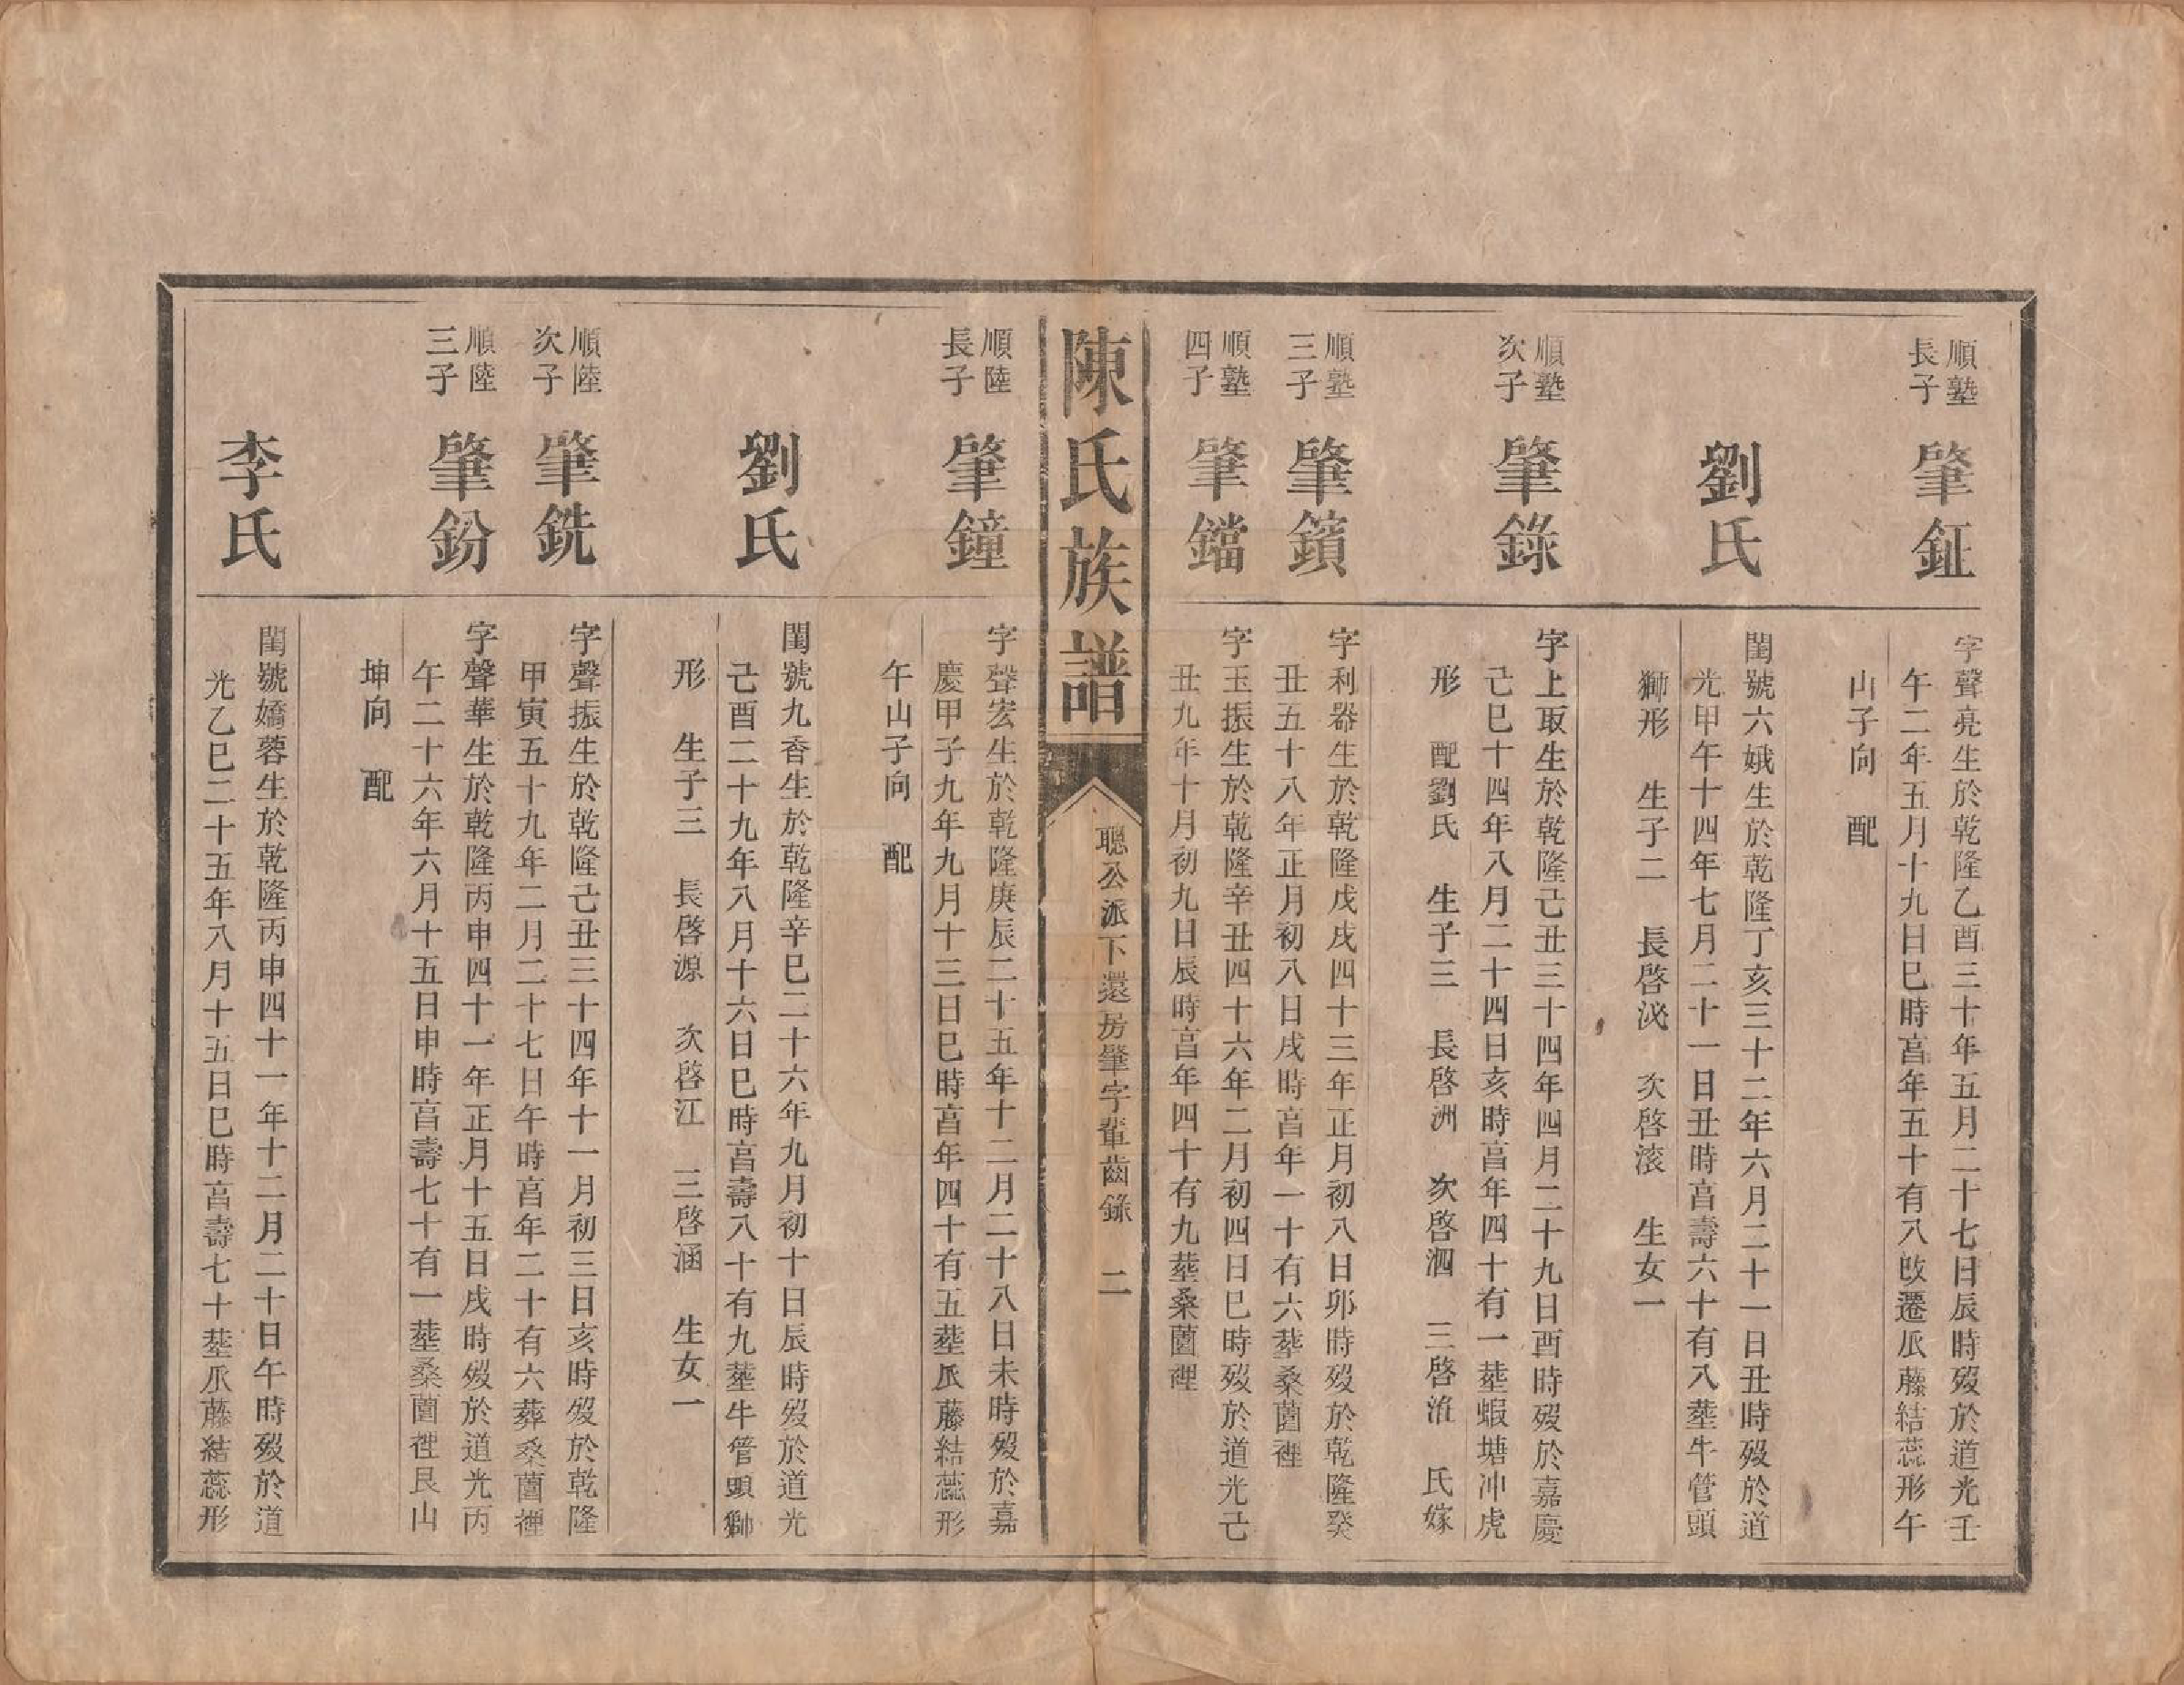 順塾
長子
肇鉦
字聲亮生於乾隆乙酉三十年五月二十七日辰時歿於道光壬
午二年五月十九日巳時亯年五十有八改遷瓜藤結蕊形午
山子向　配
劉氏
閨號六娥生於乾隆丁亥三十二年六月二十一日丑時歿於道
光甲午十四年七月二十一日丑時亯壽六十有八塟牛管頭
獅形　生子二　長啓泌　次啓滚　生女一
順塾
次子
肇錄
字上取生於乾隆己丑三十四年四月二十九日酉時歿於嘉慶
己巳十四年八月二十四日亥時亯年四十有一塟蝦塘冲虎
形　配劉氏　生子三　長啓洲　次啓泗　三啓淮　氏嫁
順塾
三子
肇鑌
字利器生於乾隆戊戌四十三年正月初八日卯時歿於乾隆癸
丑五十八年正月初八日戌時亯年一十有六葬桑薗裡
順塾
四子
肇鐺
字玉振生於乾隆辛丑四十六年二月初四日巳時歿於道光己
丑九年十月初九日辰時亯年四十有九塟桑薗裡
陳氏族譜
聰公派下還房肇字輩齒錄　二
順陸
長子
肇鐘
字聲宏生於乾隆庚辰二十五年十二月二十八日未時歿於嘉
慶甲子九年九月十三日巳時亯年四十有五塟瓜藤結蕊形
午山子向　配
劉氏
閨號九香生於乾隆辛巳二十六年九月初十日辰時歿於道光
己酉二十九年八月十六日巳時亯壽八十有九塟牛管頭獅
形　生子三　長啓源　次啓江　三啓涵　生女一
順陸
次子
肇銑
字聲振生於乾隆己丑三十四年十一月初三日亥時歿於乾隆
甲寅五十九年二月二十七日午時亯年二十有六葬桑薗裡
順陸
三子
肇鈖
字聲華生於乾隆丙申四十一年正月十五日戌時歿於道光丙
午二十六年六月十五日申時亯壽七十有一塟桑薗裡艮山
坤向　配
李氏
閨號嬌蓉生於乾隆丙申四十一年十二月二十日午時歿於道
光乙巳二十五年八月十五日巳時亯壽七十塟瓜藤結蕊形